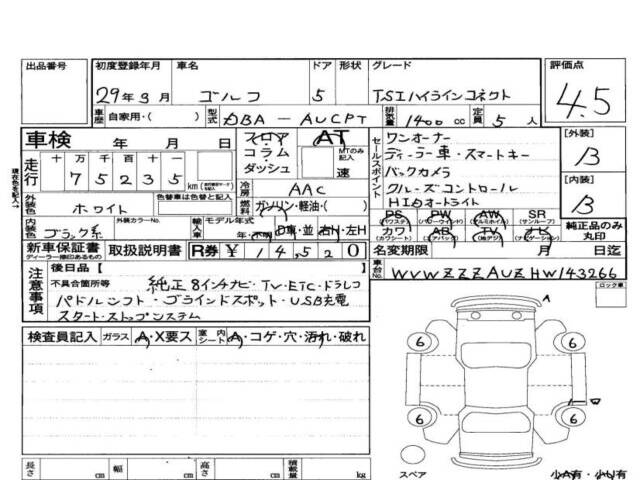 出品番号 初度登録年月 車名 ドア 形状 グレード 評価点
29年3月 ゴルフ 5 TSIハイラインコネクト 4.5
車歴 自家用・( ) 型式 DBA-AUCPT 排気量 1400 cc 定員 5 人
車検 年 月 日 フロア コラム ダッシュ AT MTのみ記入 速
走行 十 万 千 百 十 一
7 5 2 3 5 km
冷房 AAC
外装色 ホワイト 色替車は色替と記入 燃料 ガソリン・軽油・( )
内装色 ブラック系 外装カラーNo. 輸入車 モデル年式 年・不明 D車・並 右H・左H
セールスポイント
ワンオーナー
ディーラー車・スマートキー
バックカメラ
クルーズコントロール
HIDオートライト
[外装] B
[内装] B
PS (パワステ) PW (パワーウインド) AW (アルミホイル) SR (サンルーフ)
カワ (カワシート) AB (エアバッグ) TV (純正ナビ) ナビ (ナビゲーション) 純正品のみ丸印
新車保証書 ディーラー捺印あるもの 取扱説明書 R券 ¥ 14520 名変期限 月 日迄
車台No. WVWZZZAUZHW143266
注意事項 後日品[ ]
不具合箇所等 純正8インチナビ・TV・ETC・ドラレコ
パドルシフト・ブラインドスポット・USB充電
スタートストップシステム
ロック車
検査員記入 ガラス A・X要ス 室内シート A・コゲ・穴・汚れ・破れ
A
6 6
W
6 6
スペア
長さ cm 幅 cm 高さ cm 積載量 kg 小A有・小U有